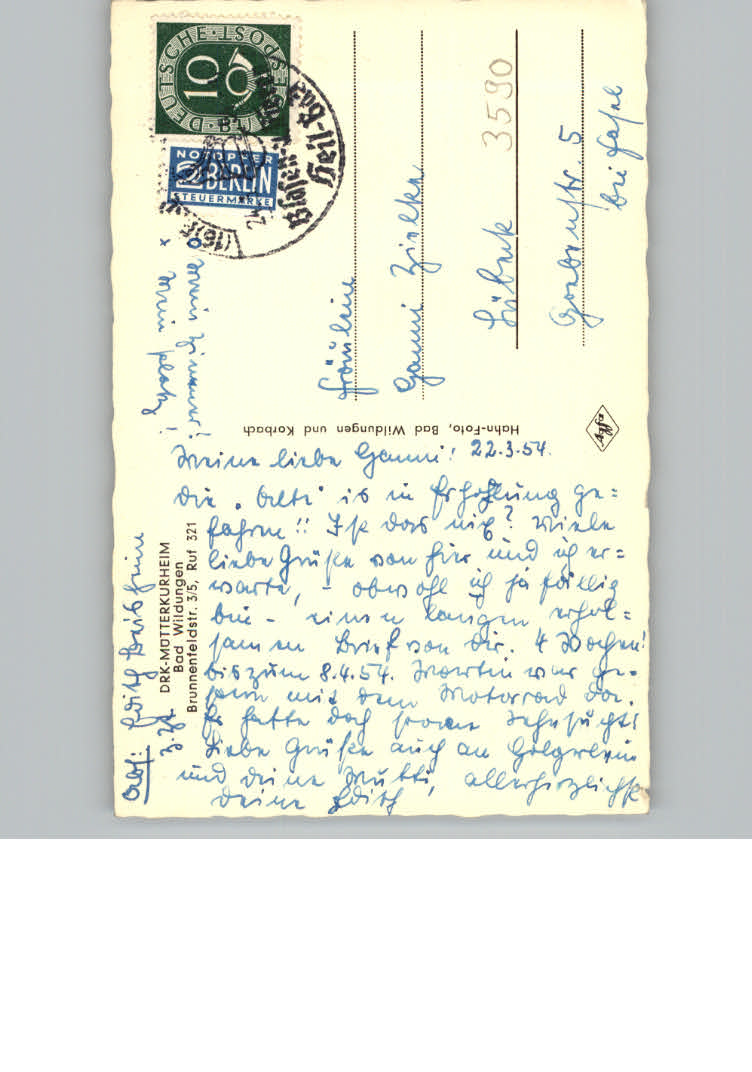 Meine liebe Hanni! 22.3.54.
Die "Alte" ist in Erholung ge=
fahren!! Ist das nix? Viele
liebe Grüße von hier und ich er=
warte, - obwohl ich ja fällig
bin - einen langen erhol=
samen Brief von Dir. 4 Wochen!
bis zum 8.4.54. Martin war ge=
stern mit dem Motorrad da.
Er hatte doch Sehnsucht!
Liebe Grüße auch an
und Deine Mutti, allerherzlichst
Deine Edith
Abs: Edith
z. Zt.
DRK-MÜTTERKURHEIM
Bad Wildungen
Brunnenfeldstr. 3/5, Ruf 321
x mein Platz!
o mein Zimmer!
Hahn-Foto, Bad Wildungen und Korbach
Agfa
Fräulein
Zielke
Lübeck
5
bei
3590
DEUTSCHE POST
10
NOTOPFER
2 BERLIN
STEUERMARKE
(16)
Heil-Bad